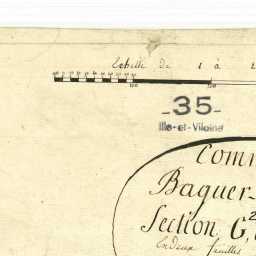 Echelle de 1 à 2
100
-35-
Ille-et-Vilaine
Comm
Baguer-
Section G, 2
En deux feuilles